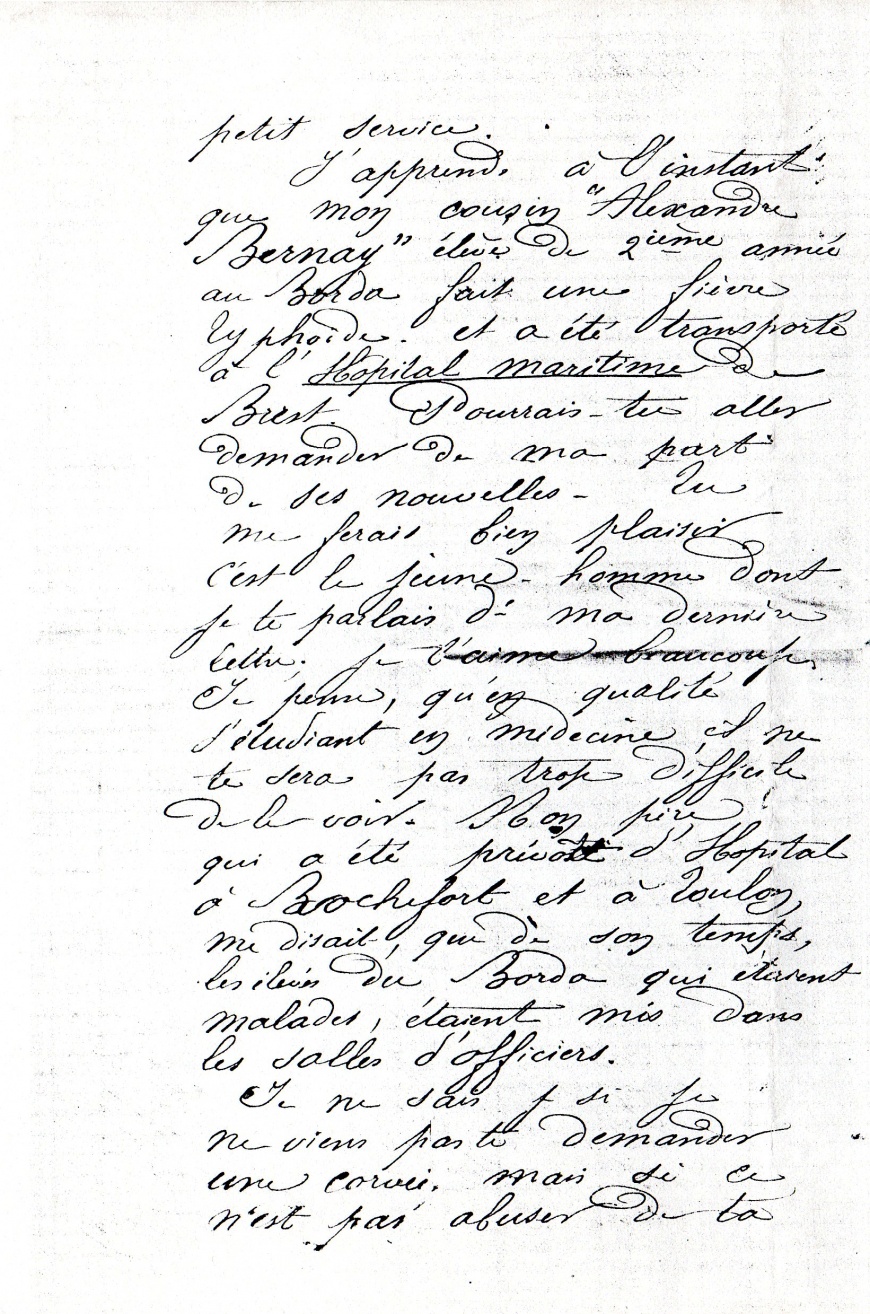 petit service.
J'apprends à l'instant
que mon cousin "Alexandre
Bernay" élève de 2ième année
au Borda fait une fièvre
typhoïde. et a été transporté
à l'Hopital maritime de
Brest. Pourrais-tu aller
demander de ma part
de ses nouvelles - Tu
me ferais bien plaisir
c'est le jeune homme dont
je te parlais ds ma dernière
lettre. je l'aime beaucoup.
Je pense, qu'en qualité
d'étudiant en médecine il ne
te sera pas trop difficile
de le voir. Mon père
qui a été prévôt d'Hopital
à Rochefort et à Toulon,
me disait, que de son temps,
les élèves du Borda qui étaient
malades, étaient mis dans
les salles d'officiers.
Je ne sais si je
ne viens pas te demander
une corvée. mais si ce
n'est pas abuser de ta